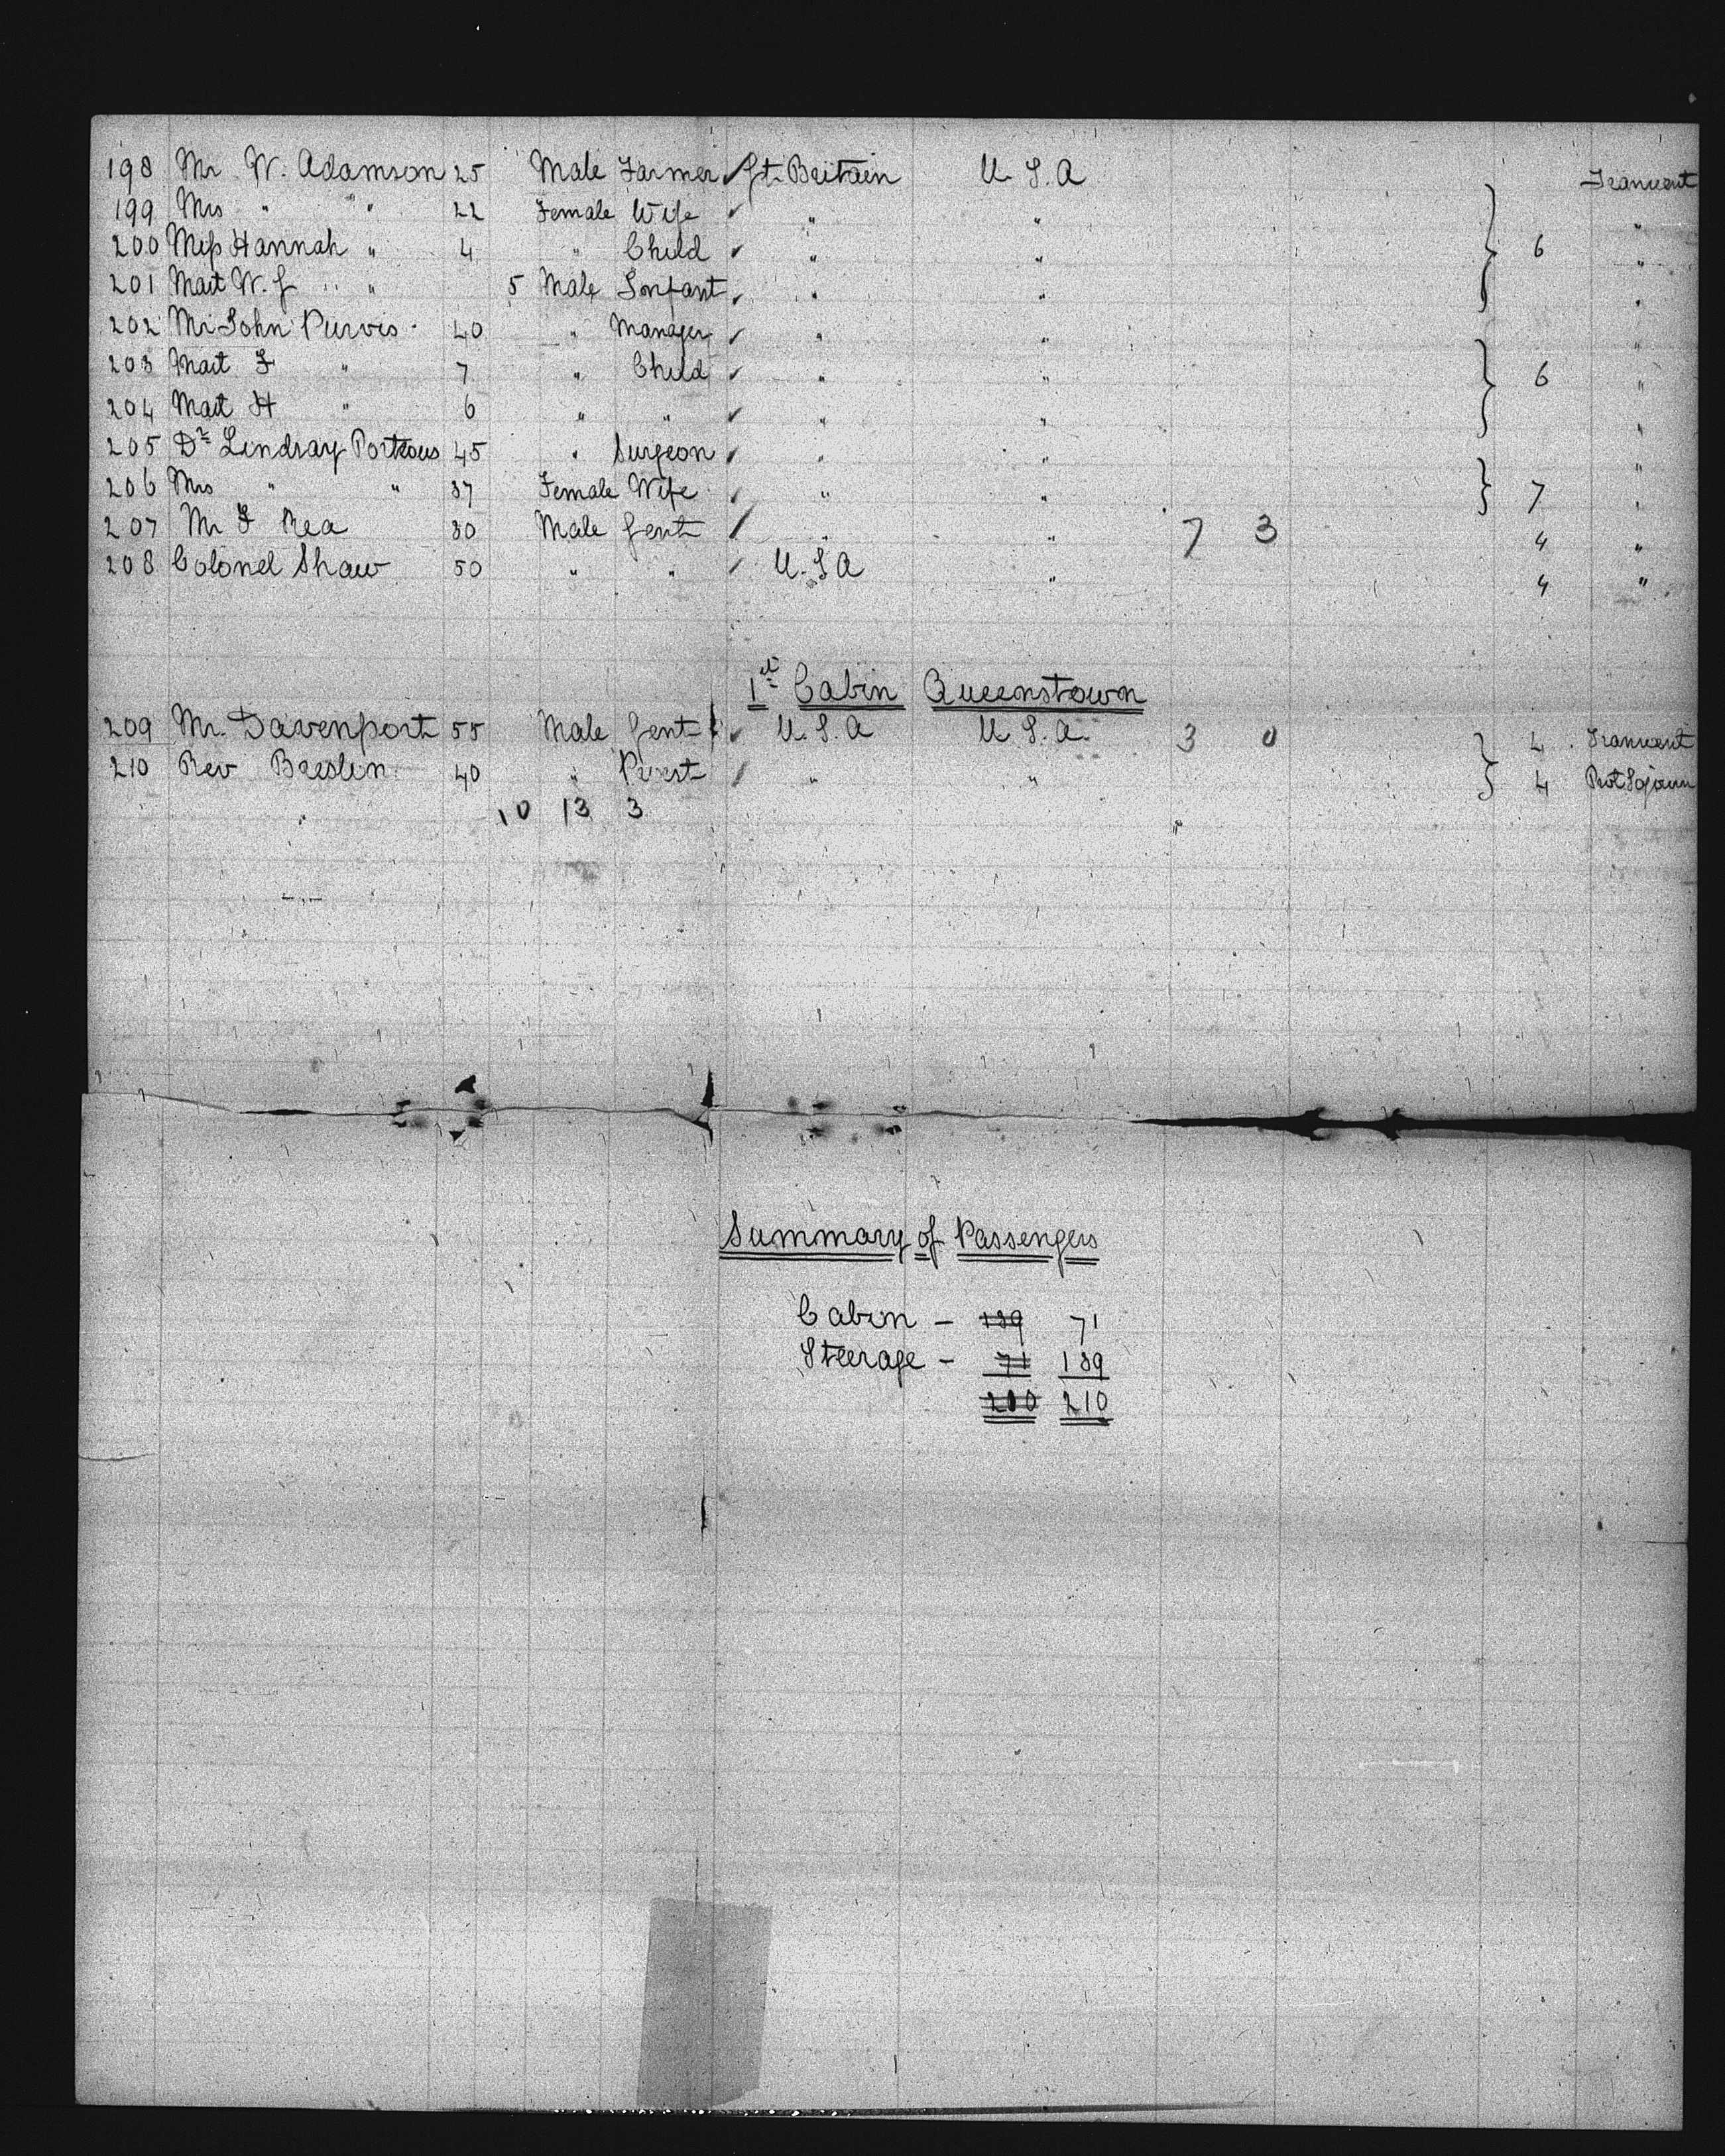 198 Mr W. Adamson 25 Male Farmer Gt Britain U.S.A Transient
199 Mrs " " 22 Female Wife " " "
200 Miss Hannah " 4 " Child " " 6 "
201 Mast W. G " " 5 Male Infant " " "
202 Mr John Purvis 40 " Manager " " "
203 Mast F " 7 " Child " " 6 "
204 Mast H " 6 " " " " "
205 Dr Lindsay Porteous 45 " Surgeon " " "
206 Mrs " " 37 Female Wife " " 7 "
207 Mr F Rea 30 Male Gent " " 7 3 4 "
208 Colonel Shaw 50 " " U.S.A " 4 "
1st Cabin Queenstown
209 Mr. Davenport 55 Male Gent U.S.A U.S.A. 3 0 4 Transient
210 Rev Breslin 40 " Priest " " 4 Prot Sojourn
" 10 13 3 "
Summary of Passengers
Cabin - 139 71
Steerage - 71 139
210 210